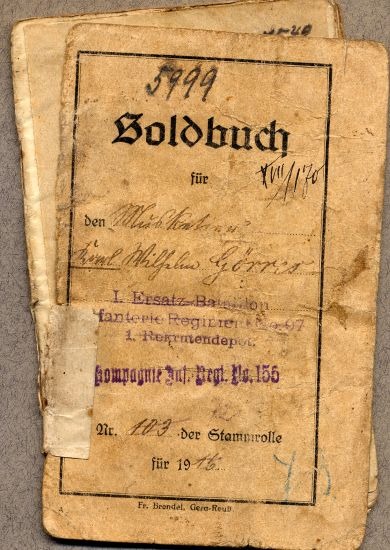 5999
Soldbuch
für
VIII/170
den Musketier
Karl Wilhelm Görres
I. Ersatz-Bataillon
fanterie Regiment No 97
1. Rekrutendepot.
Kompagnie Inf. Regt. No. 156
12
Nr. 103 der Stammrolle
für 1916
Fr. Brendel, Gera-Reuß